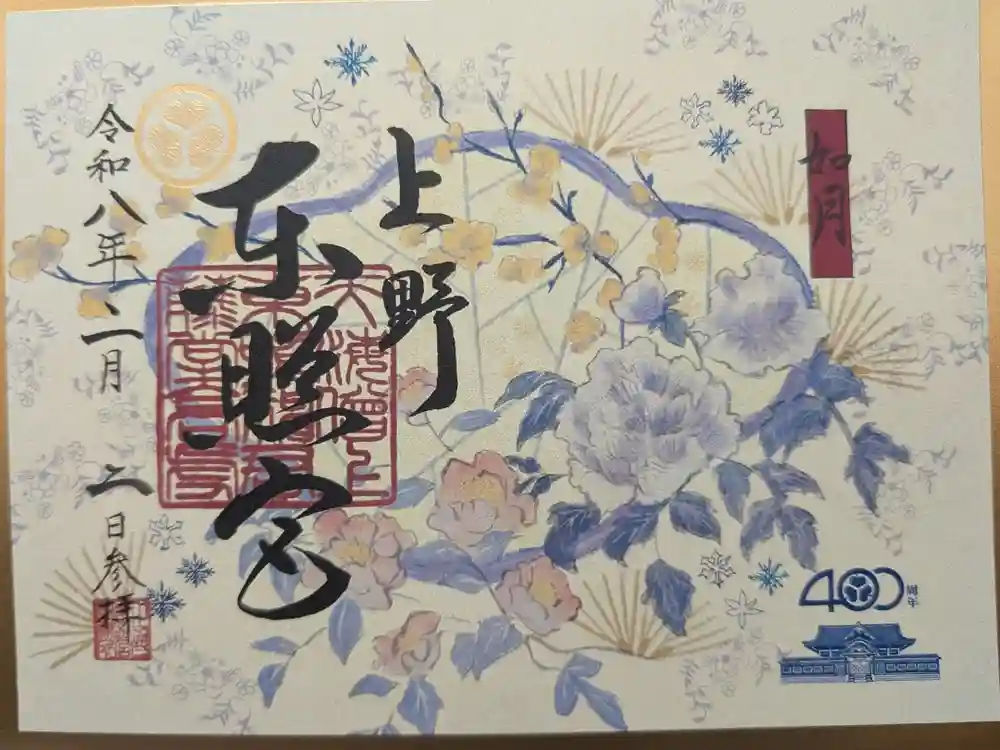 如月
上野
東照宮
令和八年二月二日参拝
400周年